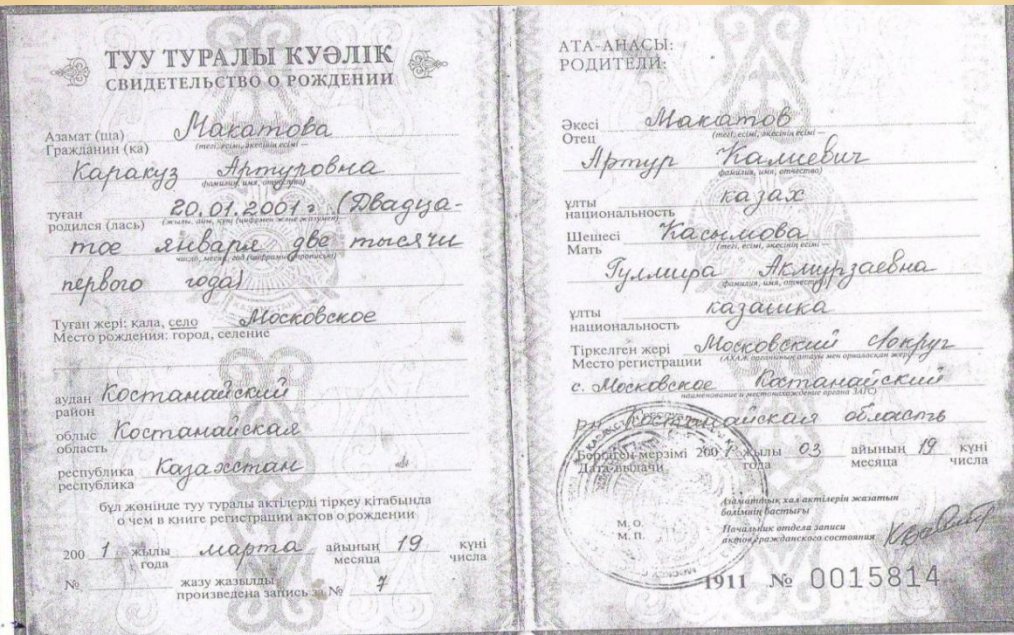 ТУУ ТУРАЛЫ КУӘЛІК
СВИДЕТЕЛЬСТВО О РОЖДЕНИИ
Азамат (ша) Макатова
Гражданин (ка) (тегі, есімі, әкесінің есімі —
Каракуз Артуровна
фамилия, имя, отчество)
туған 20.01.2001 г. (Двадца-
родился (лась) (жылы, айы, күні (цифрмен және жазумен)
тое января две тысячи
число, месяц, год (цифрами и прописью)
первого года)
Туған жері: қала, село Московское
Место рождения: город, селение
аудан Костанайский
район
облыс Костанайская
область
республика Казахстан
республика
бұл жөнінде туу туралы актілерді тіркеу кітабында
о чем в книге регистрации актов о рождении
200 1 жылы марта айының 19 күні
года месяца числа
№ жазу жазылды
произведена запись за № 7
АТА-АНАСЫ:
РОДИТЕЛИ:
Әкесі Макатов
Отец (тегі, есімі, әкесінің есімі —
Артур Калиевич
фамилия, имя, отчество)
ұлты казах
национальность
Шешесі Касымова
Мать (тегі, есімі, әкесінің есімі —
Гулмира Акмурзаевна
фамилия, имя, отчество)
ұлты казашка
национальность
Тіркелген жері Московский округ
Место регистрации (АХАЖ органының атауы мен орналасқан жері)
с. Московское Костанайский
наименование и местонахождение органа ЗАГС
Костанайская область
Берілген мерзімі 200 1 жылы 03 айының 19 күні
Дата выдачи года месяца числа
Азаматтық хал актілерін жазатын
бөлімнің бастығы
М. О.
М. П.
Начальник отдела записи
актов гражданского состояния
1911 № 0015814